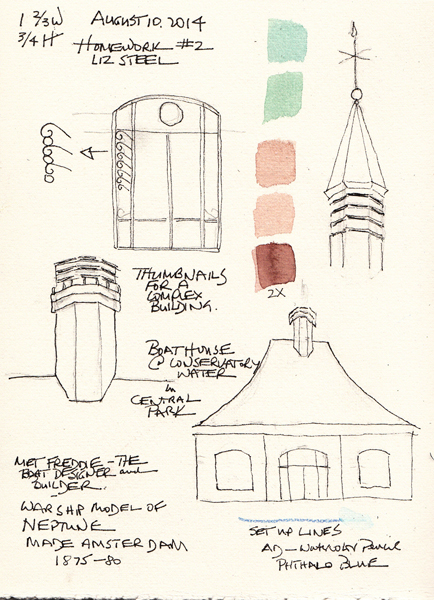 1 2/3 W AUGUST 10. 2014
3/4 H HOMEWORK #2
LIZ STEEL
2X
THUMBNAILS
FOR A
COMPLEX
BUILDING.
BOAT HOUSE
@ CONSERVATORY
WATER
in
CENTRAL
PARK
MET FREDDIE - THE
BOAT DESIGNER and
BUILDER.
WARSHIP MODEL OF
NEPTUNE
MADE AMSTERDAM
1875-80
SET UP LINES
PHTHALO BLUE